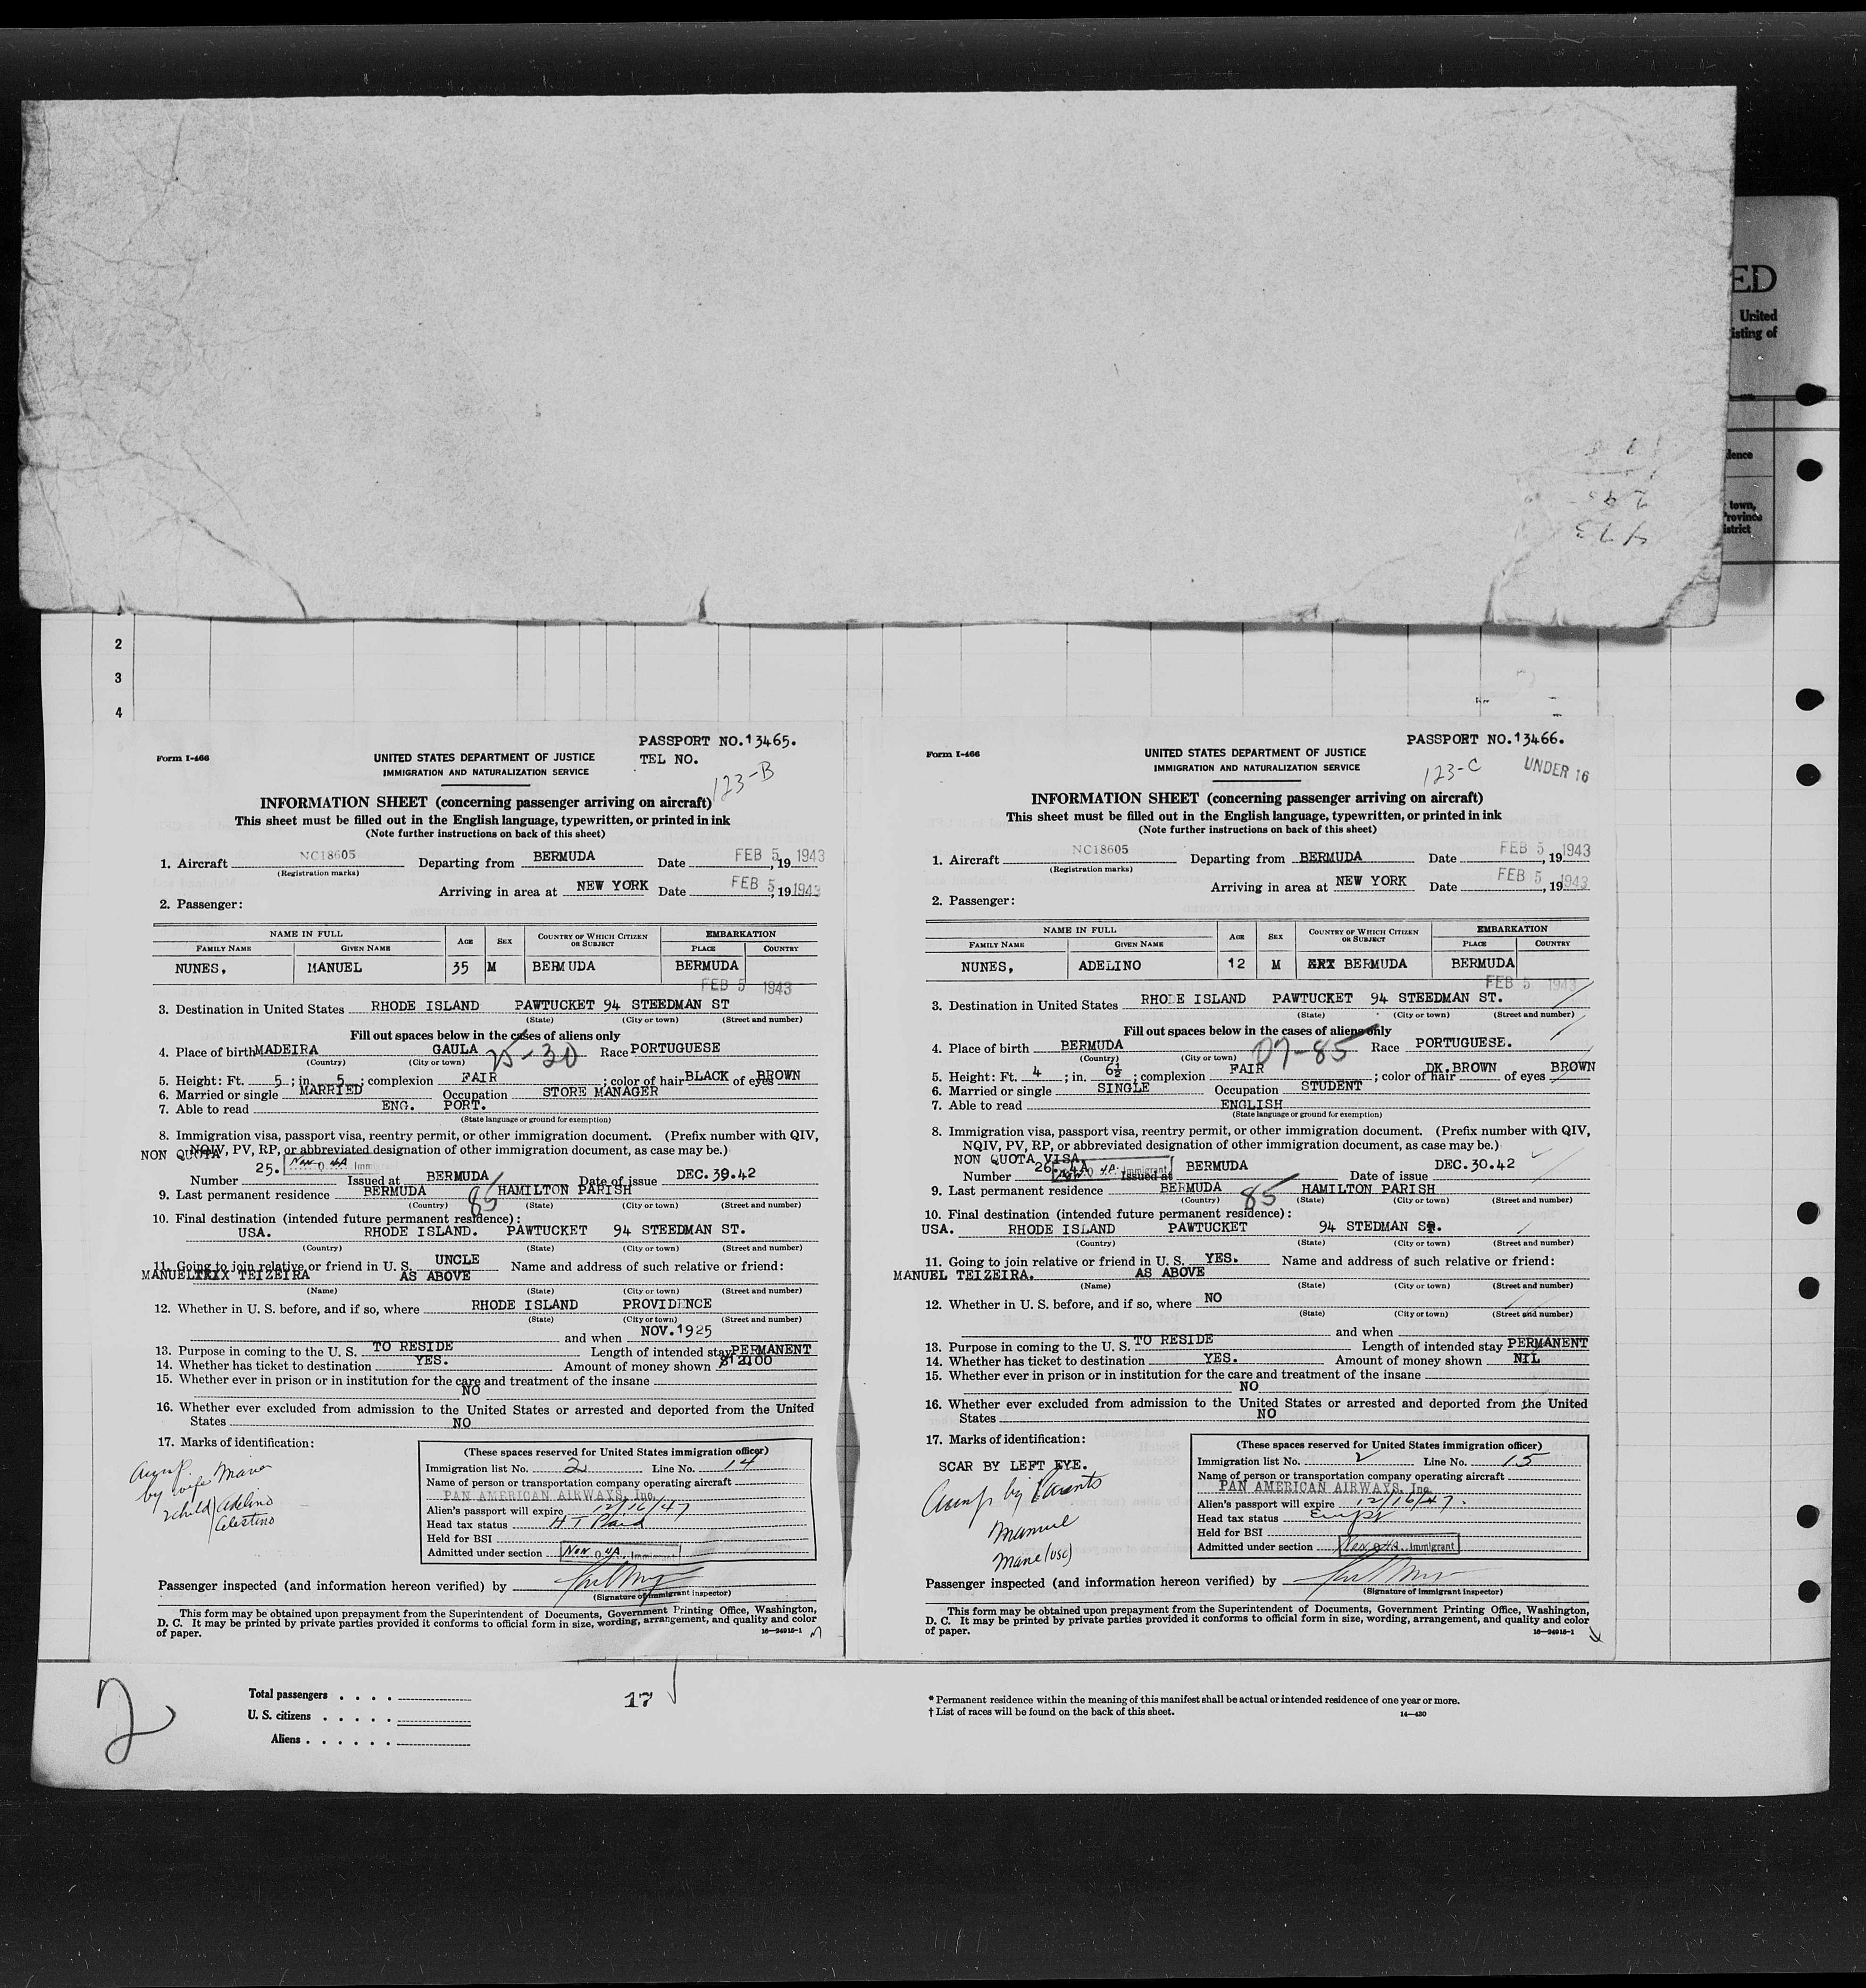 ED
United
isting of
dence
town,
Province
istrict
2
3
4
PASSPORT NO.13465.
Form I-466
UNITED STATES DEPARTMENT OF JUSTICE
TEL NO.
IMMIGRATION AND NATURALIZATION SERVICE
123-B
INFORMATION SHEET (concerning passenger arriving on aircraft)
This sheet must be filled out in the English language, typewritten, or printed in ink
(Note further instructions on back of this sheet)
1. Aircraft NC18605 Departing from BERMUDA Date FEB 5, 19 1943
(Registration marks)
Arriving in area at NEW YORK Date FEB 5, 19 1943
2. Passenger:
NAME IN FULL AGE SEX COUNTRY OF WHICH CITIZEN OR SUBJECT EMBARKATION
FAMILY NAME GIVEN NAME PLACE COUNTRY
NUNES, MANUEL 35 M BERMUDA BERMUDA
FEB 5 1943
3. Destination in United States RHODE ISLAND PAWTUCKET 94 STEEDMAN ST
(State) (City or town) (Street and number)
Fill out spaces below in the cases of aliens only
4. Place of birth MADEIRA GAULA 25-30 Race PORTUGUESE
(Country) (City or town)
5. Height: Ft. 5; in. 5; complexion FAIR; color of hair BLACK of eyes BROWN
6. Married or single MARRIED Occupation STORE MANAGER
7. Able to read ENG. PORT.
(State language or ground for exemption)
8. Immigration visa, passport visa, reentry permit, or other immigration document. (Prefix number with QIV,
NON QUOTA NQIV, PV, RP, or abbreviated designation of other immigration document, as case may be.)
Number 25. Non Q 4A Issued at BERMUDA Date of issue DEC. 39.42
9. Last permanent residence BERMUDA 85 HAMILTON PARISH
(Country) (State) (City or town) (Street and number)
10. Final destination (intended future permanent residence):
USA. RHODE ISLAND. PAWTUCKET 94 STEEDMAN ST.
(Country) (State) (City or town) (Street and number)
11. Going to join relative or friend in U. S. UNCLE Name and address of such relative or friend:
MANUEL TEIZEIRA AS ABOVE
(Name) (State) (City or town) (Street and number)
12. Whether in U. S. before, and if so, where RHODE ISLAND PROVIDENCE
(State) (City or town) (Street and number)
and when NOV. 1925
13. Purpose in coming to the U. S. TO RESIDE Length of intended stay PERMANENT
14. Whether has ticket to destination YES. Amount of money shown
15. Whether ever in prison or in institution for the care and treatment of the insane
NO
16. Whether ever excluded from admission to the United States or arrested and deported from the United
States NO
17. Marks of identification:
by wife Maria
2 child Adelino
Celestino
(These spaces reserved for United States immigration officer)
Immigration list No. 2 Line No. 14
Name of person or transportation company operating aircraft
PAN AMERICAN AIRWAYS, Inc.
Alien's passport will expire 12/16/47
Head tax status H T Paid
Held for BSI
Admitted under section Non Q 4A Immigrant
Passenger inspected (and information hereon verified) by
(Signature of immigrant inspector)
This form may be obtained upon prepayment from the Superintendent of Documents, Government Printing Office, Washington,
D. C. It may be printed by private parties provided it conforms to official form in size, wording, arrangement, and quality and color
of paper.
16—24915-1
PASSPORT NO.13466.
Form I-466
UNITED STATES DEPARTMENT OF JUSTICE
IMMIGRATION AND NATURALIZATION SERVICE
123-C
UNDER 16
INFORMATION SHEET (concerning passenger arriving on aircraft)
This sheet must be filled out in the English language, typewritten, or printed in ink
(Note further instructions on back of this sheet)
1. Aircraft NC18605 Departing from BERMUDA Date FEB 5, 19 1943
(Registration marks)
Arriving in area at NEW YORK Date FEB 5, 19 1943
2. Passenger:
NAME IN FULL AGE SEX COUNTRY OF WHICH CITIZEN OR SUBJECT EMBARKATION
FAMILY NAME GIVEN NAME PLACE COUNTRY
NUNES, ADELINO 12 M BERMUDA BERMUDA
FEB 5 1943
3. Destination in United States RHODE ISLAND PAWTUCKET 94 STEEDMAN ST.
(State) (City or town) (Street and number)
Fill out spaces below in the cases of aliens only
4. Place of birth BERMUDA 07-85 Race PORTUGUESE.
(Country) (City or town)
5. Height: Ft. 4; in. 6½; complexion FAIR; color of hair DK.BROWN of eyes BROWN
6. Married or single SINGLE Occupation STUDENT
7. Able to read ENGLISH
(State language or ground for exemption)
8. Immigration visa, passport visa, reentry permit, or other immigration document. (Prefix number with QIV,
NQIV, PV, RP, or abbreviated designation of other immigration document, as case may be.)
NON QUOTA VISA
Number 26. 4A Immigrant Issued at BERMUDA Date of issue DEC.30.42
9. Last permanent residence BERMUDA 85 HAMILTON PARISH
(Country) (State) (City or town) (Street and number)
10. Final destination (intended future permanent residence):
USA. RHODE ISLAND PAWTUCKET 94 STEDMAN ST.
(Country) (State) (City or town) (Street and number)
11. Going to join relative or friend in U. S. YES. Name and address of such relative or friend:
MANUEL TEIZEIRA. AS ABOVE
(Name) (State) (City or town) (Street and number)
12. Whether in U. S. before, and if so, where NO
(State) (City or town) (Street and number)
and when
13. Purpose in coming to the U. S. TO RESIDE Length of intended stay PERMANENT
14. Whether has ticket to destination YES. Amount of money shown NIL
15. Whether ever in prison or in institution for the care and treatment of the insane
NO
16. Whether ever excluded from admission to the United States or arrested and deported from the United
States NO
17. Marks of identification:
SCAR BY LEFT EYE.
by Parents
Manuel
Marie (USC)
(These spaces reserved for United States immigration officer)
Immigration list No. 2 Line No. 15
Name of person or transportation company operating aircraft
PAN AMERICAN AIRWAYS, Inc.
Alien's passport will expire 12/16/47.
Head tax status
Held for BSI
Admitted under section Non Q 4A Immigrant
Passenger inspected (and information hereon verified) by
(Signature of immigrant inspector)
This form may be obtained upon prepayment from the Superintendent of Documents, Government Printing Office, Washington,
D. C. It may be printed by private parties provided it conforms to official form in size, wording, arrangement, and quality and color
of paper.
16—24915-1
2
Total passengers
U. S. citizens
Aliens
17
* Permanent residence within the meaning of this manifest shall be actual or intended residence of one year or more.
† List of races will be found on the back of this sheet.
14—430